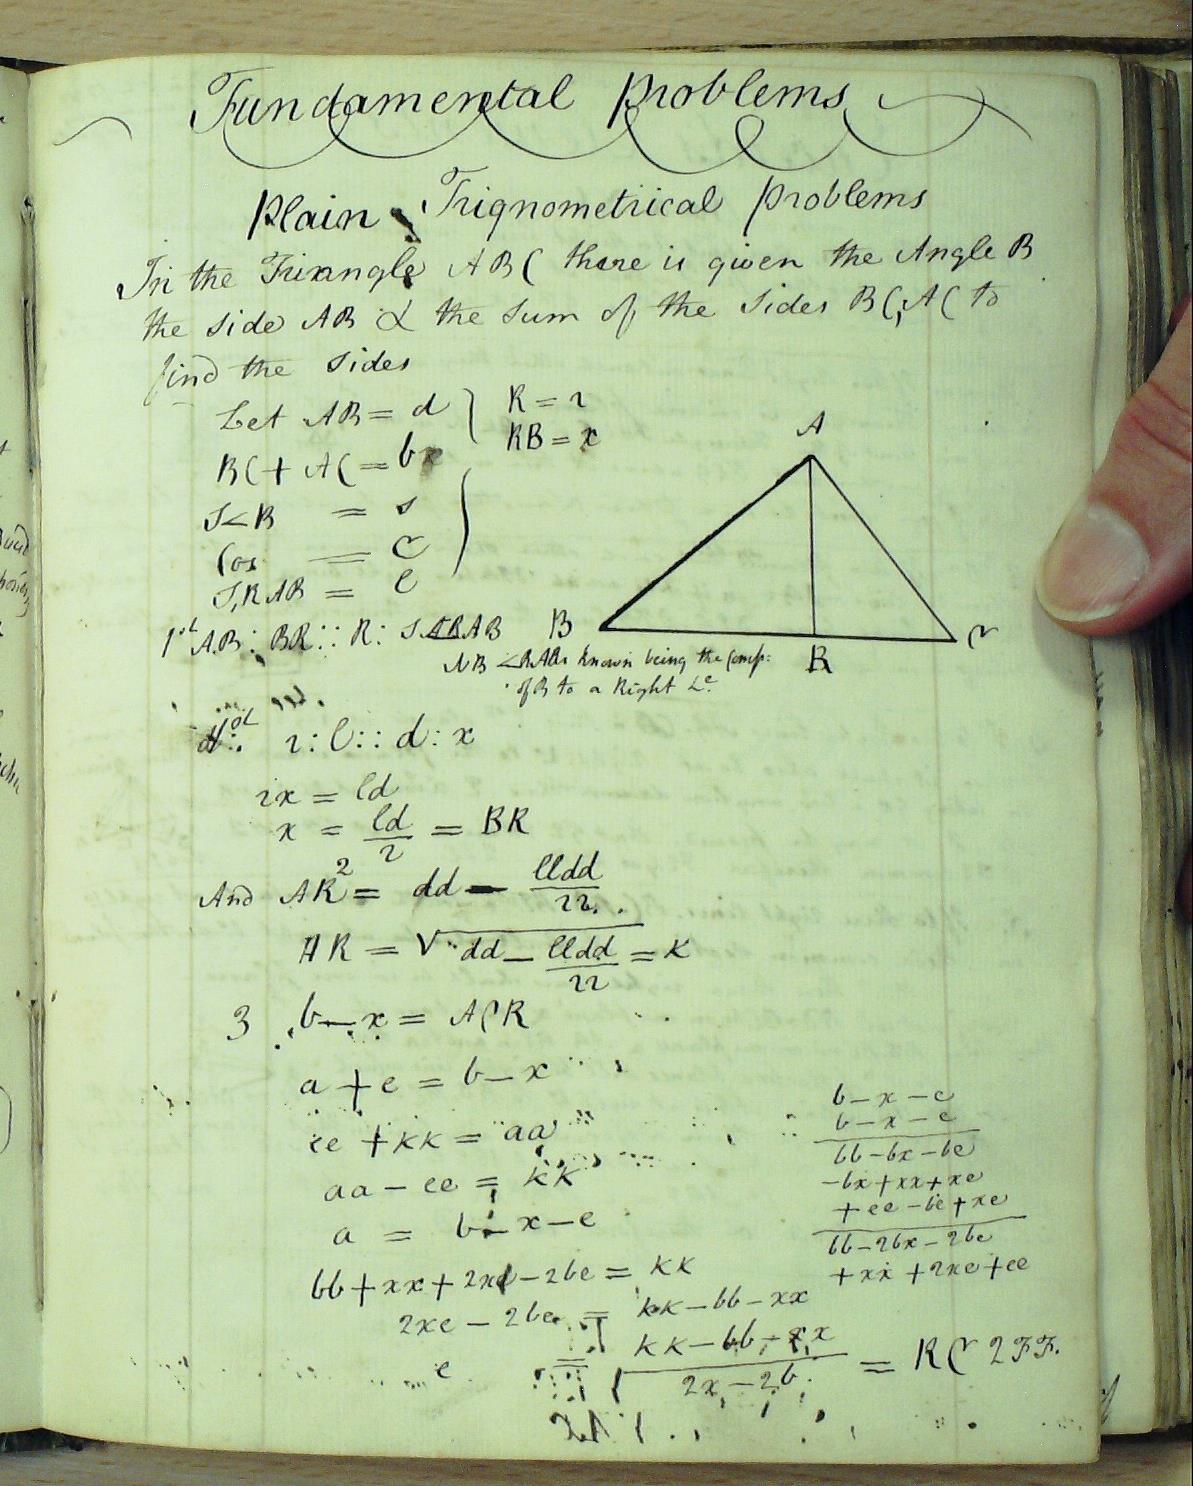 Fundamental Problems
Plain Trignometrical Problems
In the Triangle ABC there is given the Angle B
the side AB & the Sum of the Sides BC, AC to
find the Sides
Let AB = d
R = r
RB = x
BC + AC = b
S∠B = s
Cos = c
S,RAB = l
1st AB : BR :: R : S RAB
NB ∠RAB is known being the Comp:
of B to a Right Le.
A
B
R
C
r : l :: d : x
rx = ld
x = ld/r = BR
And AR² = dd − lldd/rr
AR = √dd − lldd/rr = K
3 b − x =
a + e = b − x
ee + KK = aa
aa − ee = KK
a = b − x − e
bb + xx + 2xe − 2be = KK
2xe − 2be = KK − bb − xx
e = KK − bb − xx/2x − 2b = RC 2FF.
b − x − e
b − x − e
bb − bx − be
− bx + xx + xe
+ ee − be + xe
bb − 2bx − 2be
+ xx + 2xe + ee